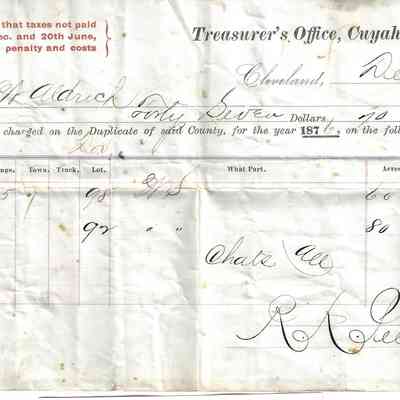 that taxes not paid
ec. and 20th June,
penalty and costs
Treasurer's Office, Cuyah
Cleveland, De
W Aldrich Forty Seven Dollars 70
charged on the Duplicate of said County, for the year 187 , on the follo
nge. Town. Track. Lot. What Part. Acres
5 7 98 60
92 " " 80
Chats All
R. R.